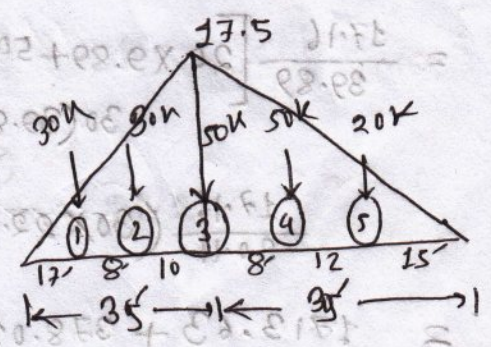 17.5
30K 30K 50K 50K 20K
1 2 3 4 5
17' 8' 10 8' 12 15'
35' 35'